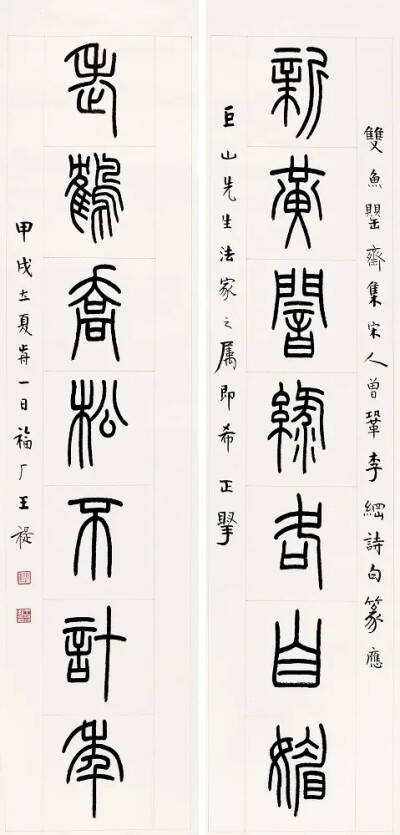 雙魚罌齋集宋人曾鞏李綱詩句篆應
新黃闇綠各自媚
巨山先生法家之属即希正掔
老鶴喬松不計年
甲戌立夏歬一日福厂王禔